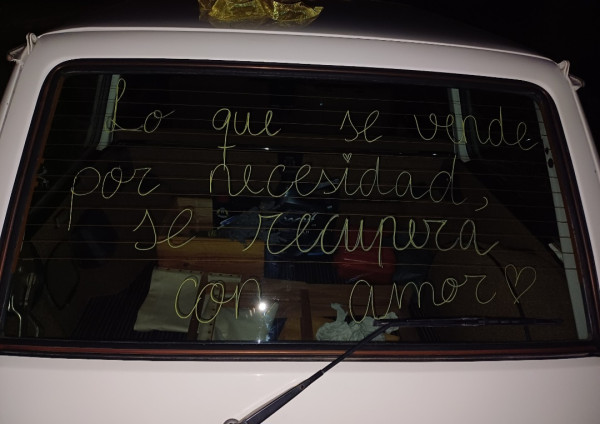 Lo que se vende
por necesidad,
se recupera
con amor ♡